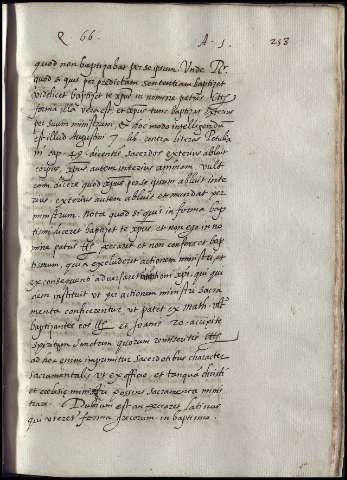 Q. 66. A. 1. 258
quod non baptizabat per se ipsum. Unde Rr.
quod si quis per predictam sententiam baptizet
videlicet baptizet te xpus in nomine patris etc
forma illa vera est, et xpus tunc baptizat exterius
per suum ministrum, & hoc modo intelligenda
est illud Augustini lib. contra literas Petilia
in cap. 49. dicentis sacerdos exterius abluit
corpus, xpus autem interius animam. vult
enim dicere quod xpus per se ipsum abluit inte
rius, exterius autem abluit et mundat per
ministrum. Nota quod si quis in forma bap
tismi diceret baptizet te xpus et non ego in no
mine patris etc. peccaret et non conferret bap
tismum, quia excluderet actionem ministri, et
ex consequenti adversaret institutioni xpi, qui qui
dem instituit ut per actionem ministri sacra
menta conficerentur, ut patet ex Math. ult.
baptizantes eos etc et Joanis 20. accipite
spiritum sanctum quorum remiseritis etc
ad hoc enim imprimitur sacerdotibus character
sacramentalis, ut ex officio, et tanquam christi
et ecclesie ministri possint sacramenta minis
trare. Dubium est an peccaret latinus
qui uteret forma grecorum in baptismo.